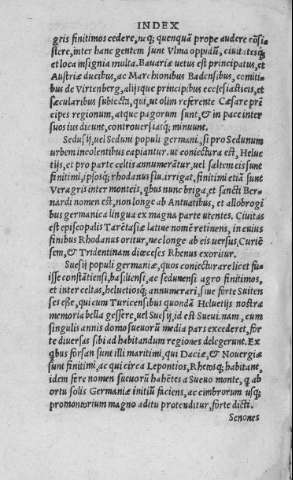 INDEX
gris finitimos cedere, neq; quenquã prope audere cõsi
stere, inter hanc gentem sunt Vlma oppidũ, ciuitatesq;
et loca insignia multa. Bauariæ uetus est principatus, et
Austriæ ducibus, ac Marchionibus Badensibus, comiti
bus de Virtenberg, alijsque principibus ecclesiasticis, et
sæcularibus subiecta, qui, ut olim referente Cæsare prĩ
cipes regionum, atque pagorum sunt, & in pace inter
suos ius dicunt, controuersiasq; minuunt.
Sedusij, uel Seduni populi germani, si pro Sedunum
urbem incolentibus capiantur, ut coniectura est, Helue
tijs, et pro parte celtis annumerãtur, uel saltem eis sunt
finitimi, ipsosq; rhodanus flu. irrigat, finitimi etiã sunt
Veragris inter monteis, qbus nunc briga, et sancti Ber-
nardi nomen est, non longe ab Antuatibus, et allobrogi
bus germanica lingua ex magna parte utentes. Ciuitas
est episcopalis Tarẽtasiæ latine nomẽ retinens, in cuius
finibus Rhodanus oritur, nec longe ab eis uersus, Curiẽ
sem, & Tridentinam diœceses Rhenus exoritur.
Sueßij populi germaniæ, quos coniecturare licet fu=
isse constãtiensi, basiliensi, ac sedunensi agro finitimos,
et inter celtas, heluetiosq; annumerari, siue forte Suiten
ses esse, qui cum Turicensibus quondã Heluetijs nostra
memoria bella gessere, uel Sueßij, id est Sueui. nam, cum
singulis annis domo sueuorũ media pars excederet, for
te diuersas sibi ad habitandum regiones delegerunt. Ex
qbus forsan sunt illi maritimi, qui Daciæ, & Nouergiæ
sunt finitimi, ac qui circa Lepontios, Rhenosq; habitant,
idem fere nomen sueuorũ habẽtes a Sueuo monte, q ab
ortu solis Germaniæ initiũ faciens, ac cimbrorum usq;
promontorium magno aditu protenditur, forte dicti.
Senones